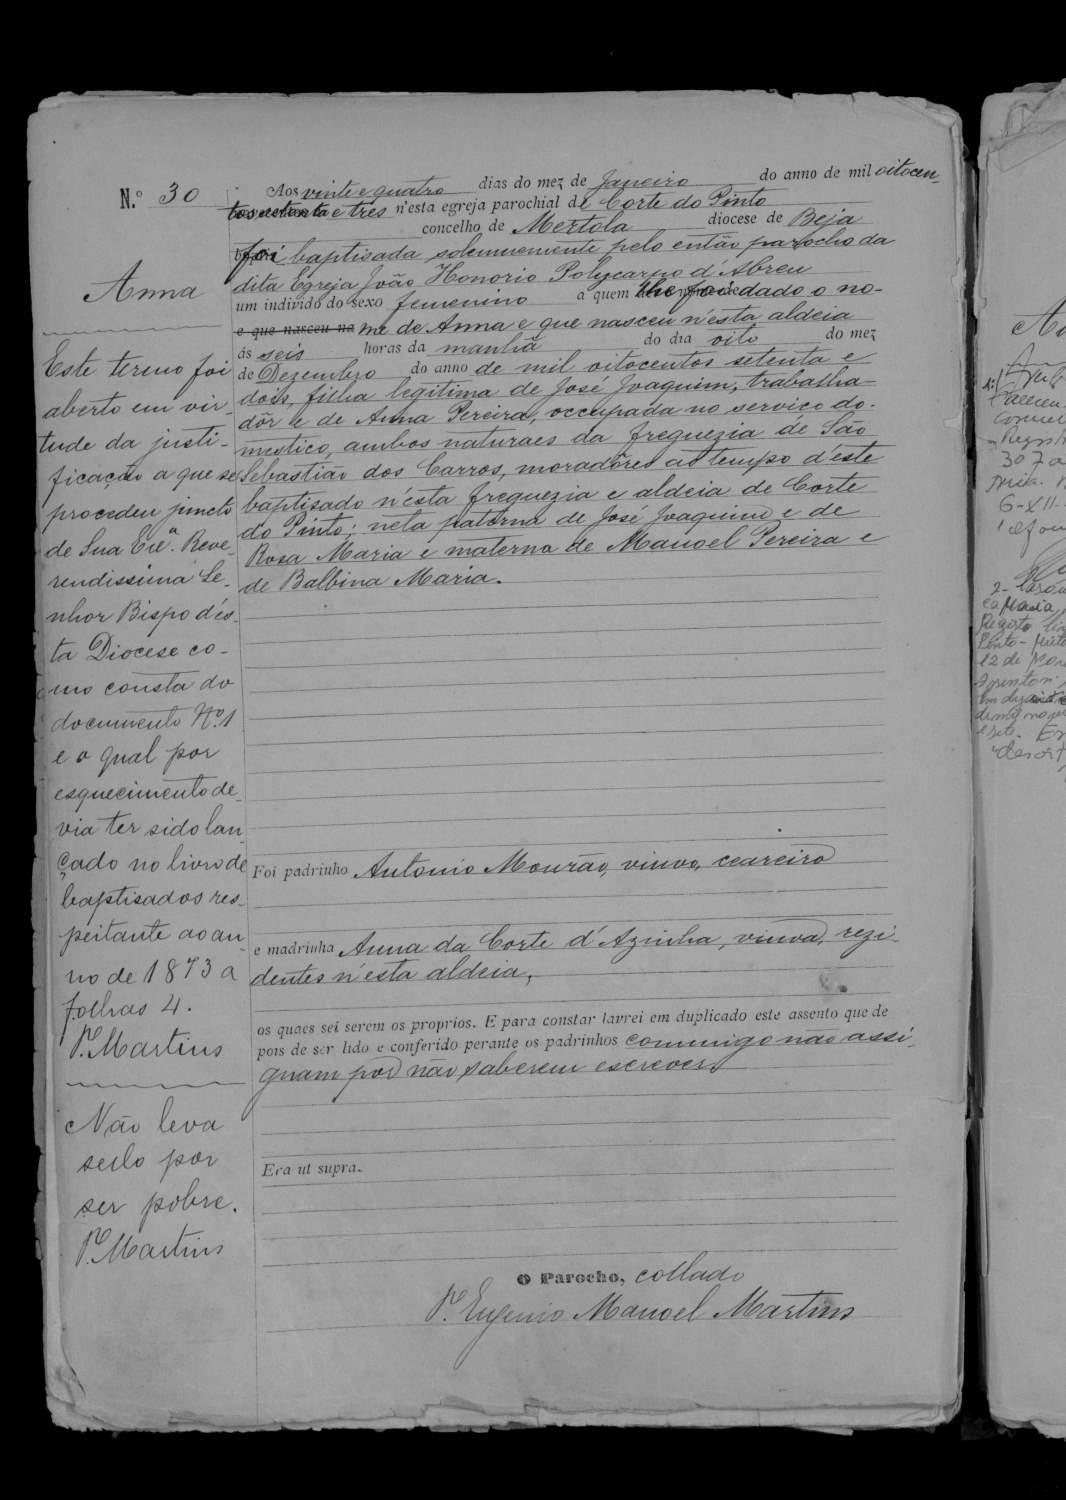 N.º 30
Anna
Este termo foi
aberto em vir-
tude da justi-
ficação a que se
procedeu juncto
de Sua Exª. Reve-
rendissima Se-
nhor Bispo d'es-
ta Diocese co-
mo consta do
documento Nº 1
e o qual por
esquecimento de-
via ter sido lan-
çado no livro de
baptisados res-
peitante ao an-
no de 1873 a
folhas 4.
Pe. Martins
Não leva
sello por
ser pobre.
Pe. Martins
Aos vinte e quatro dias do mez de Janeiro do anno de mil oitocen-
tos setenta e tres n'esta egreja parochial de Corte do Pinto
concelho de Mertola diocese de Beja
foi baptisada solemnemente pelo então parocho da
dita Egreja João Honorio Polycarpo d'Abreu
um individo do sexo femenino a quem lhe foi dado o no-
e que nasceu na me de Anna e que nasceu n'esta aldeia
ás seis horas da manhã do dia oito do mez
de Dezembro do anno de mil oitocentos setenta e
dois, filha legitima de José Joaquim, trabalha-
dôr e de Anna Pereira, occupada no servico do-
mestico, ambos naturaes da freguezia de São
Sebastião dos Carros, moradôres ao tempo d'este
baptisado n'esta freguezia e aldeia de Corte
do Pinto; neta paterna de José Joaquim e de
Rosa Maria e materna de Manoel Pereira e
de Balbina Maria.
Foi padrinho Antonio Mourão, viuvo, ceareiro
e madrinha Anna da Corte d'Azinha, viuva, rezi-
dentes n'esta aldeia,
os quaes sei serem os proprios. E para constar lavrei em duplicado este assento que de
pois de ser lido e conferido perante os padrinhos commigo não assi-
gnam por não saberem escrever.
Era ut supra.
O Parocho, collado
Pe. Eugenio Manoel Martins